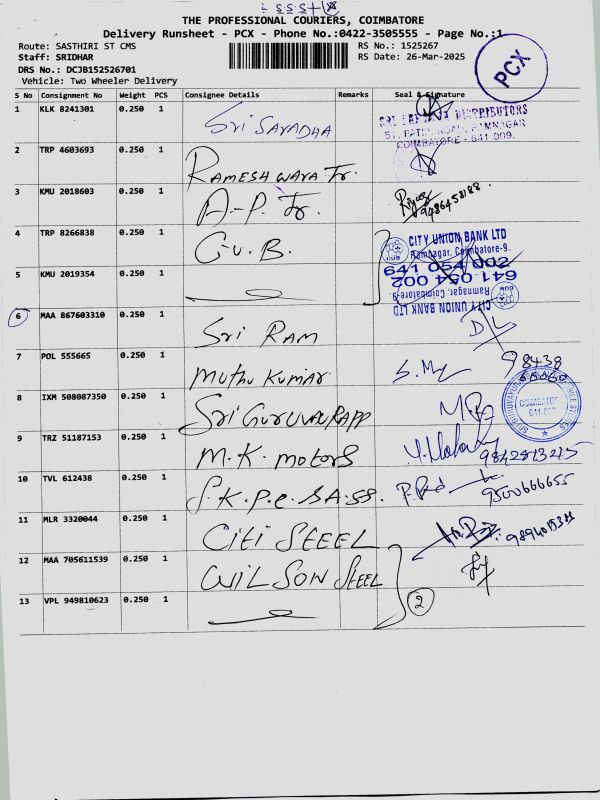 THE PROFESSIONAL COURIERS, COIMBATORE
Delivery Runsheet - PCX - Phone No.:0422-3505555 - Page No.:1
Route: SASTHIRI ST CMS
RS No.: 1525267
Staff: SRIDHAR
RS Date: 26-Mar-2025
DRS No.: DCJB152526701
Vehicle: Two Wheeler Delivery
PCX
S No Consignment No Weight PCS Consignee Details Remarks Seal & Signature
1 KLK 8241301 0.250 1 Sri SARADHA
SRI SARADA DISTRIBUTORS
RAMNAGAR
COIMBATORE - 641 009.
2 TRP 4603693 0.250 1 RAMESHWARA Tr.
3 KMU 2018603 0.250 1 A-P. Tr. 9486458188
4 TRP 8266838 0.250 1 C.U.B.
CITY UNION BANK LTD
Ramnagar, Coimbatore-9.
641 054 002
5 KMU 2019354 0.250 1
641 054 002
Ramnagar, Coimbatore-9.
CITY UNION BANK LTD
6 MAA 867603310 0.250 1 Sri RAM
7 POL 555665 0.250 1 Muthu Kumar 98438
8 IXM 508087350 0.250 1 Sri GURUVAURAPP
COIMBATORE
641 009
9 TRZ 51187153 0.250 1 M.K. Motors 9842813215
10 TVL 612438 0.250 1 S.K.P.C. SA.SS. 9500666655
11 MLR 3320044 0.250 1 Citi STEEL
12 MAA 705611539 0.250 1 WILSON STEEL
2
13 VPL 949810623 0.250 1